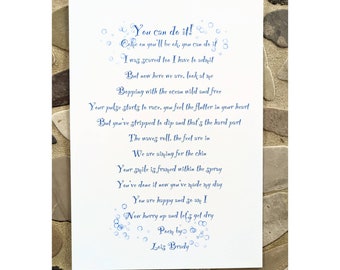 You can do it!
Come on you'll be ok, you can do it
I was scared too I have to admit
But now here we are, look at me
Bopping with the ocean wild and free
Your pulse starts to race, you feel the flutter in your heart
But you've stripped to dip and that's the hard part
The waves roll, the feet are in
We are aiming for the chin
Your smile is framed within the spray
You've done it now you've made my day
You are happy and so am I
Now hurry up and let's get dry
Poem by
Lois Brady